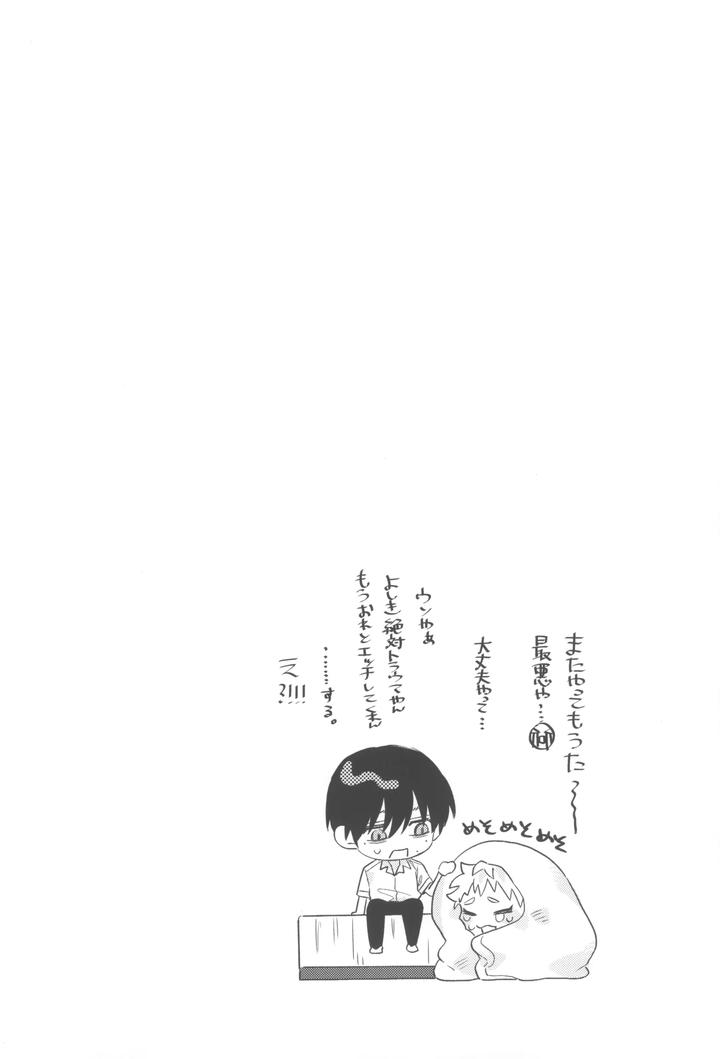 またやってもうた〜〜
最悪や…
大丈夫やって…
ウンやぁ
よしき絶対トラウマやん
もうおれとエッチしてくれん
………する。
エ?!!!
めそめそめそ